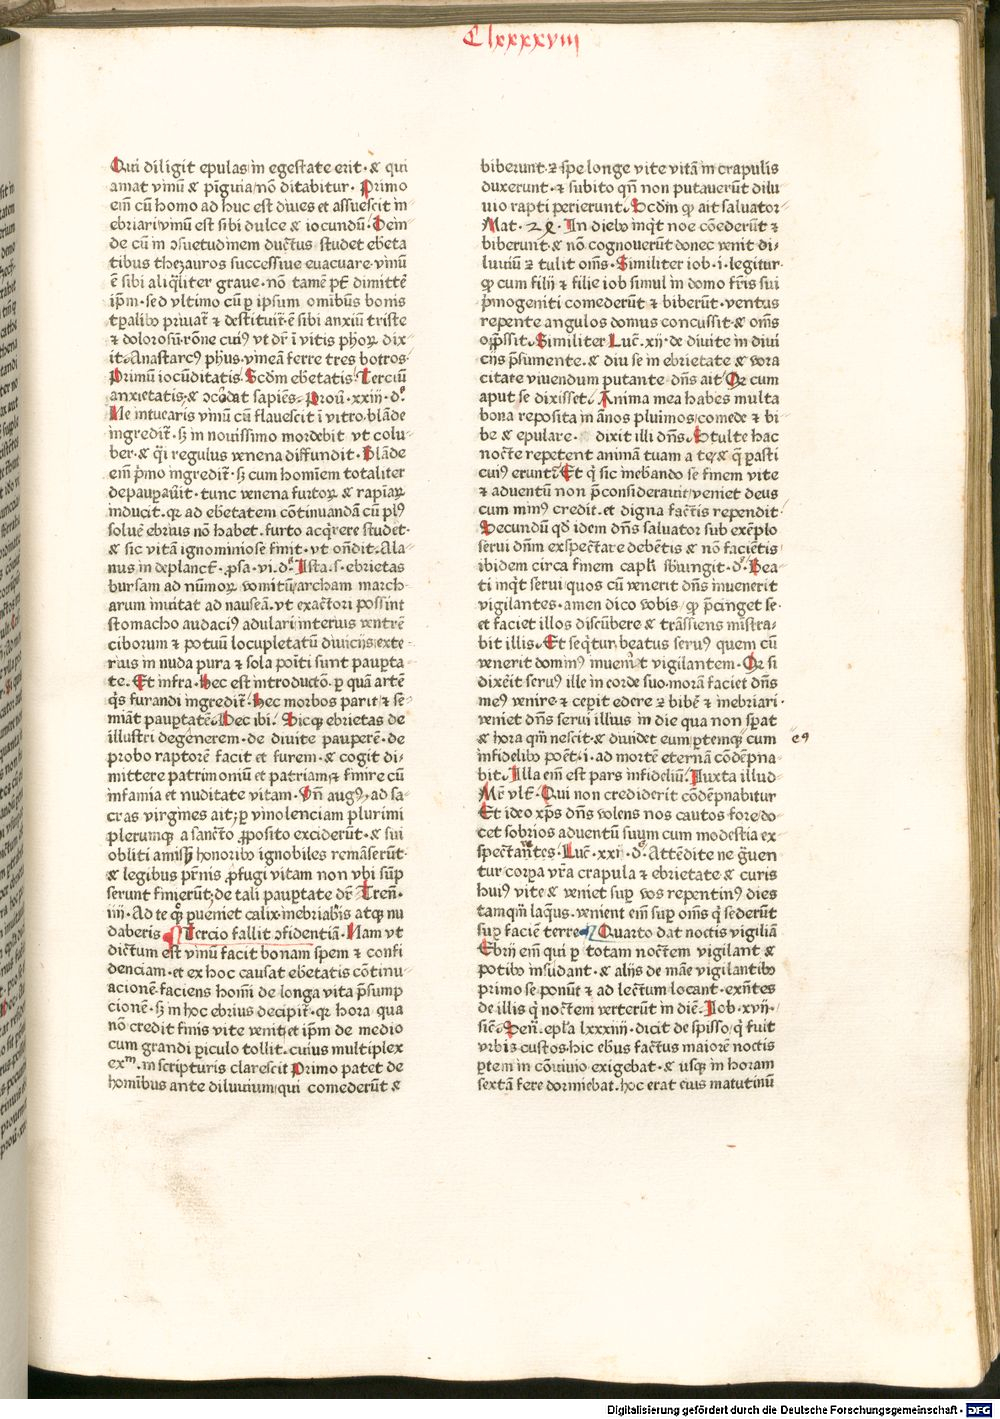 Clxxxxviii
Qui diligit epulas in egestate erit · & qui
amat vinū & pīguia nō ditabitur · Primo
eīn cū homo ad huc est dives et assuescit in
ebriari vinū est sibi dulce & iocundū · Dein
de cū in ɔsuetudinem ductus studet ebeta
tibus thezauros successive evacuare vinū
ē sibi aliqͣliter grave · nō tamē pᷓ dimittē
ip̄m · sed vltimo cū ꝑ ipsum omībus bonis
tꝑalibꝫ privat᷑ & destituit᷑ ē sibi anxiū triste
& dolorosū · rōne cuiꝰ vt dr̄ ī vitis phoꝝ dix
it · Anastarcꝰ phus · vineā ferre tres botros ·
Primū iocūditatis · Scdm ebetatis · Terciū
anxietatis · & ɔcōdat sapiēs · Proū · xxiij · dͦ ·
Ne intuearis vinū cū flavescit ī vitro · blāde
ingredit᷑ · sꝫ in novissimo mordebit vt colu
ber · & qͥi regulus venena diffundit · Blāde
eīn pͥmo ingredit᷑ · sꝫ cum hominem totaliter
depauꝑav̄it · tunc venena furtoꝝ & rapiaꝝ
inducit · qꝛ ad ebetatem cōtinuandā cū plꝰ
solvē ebrius nō habet · furto acqͥrere studet ·
& sic vitā ignominiose finit · vt on̄dit · Ala
nus in deplanctᷓ · ꝓsa · vi · dͦ · Ista · s · ebrietas
bursam ad nūmoꝝ vomitū / archam march
arum invitat ad nauseā · vt exactori possint
stomacho audaciꝰ adulari interius ventrē
ciborum & potuū locupletatū diviciis exte
rius in nuda pura & sola poīti sunt pauꝑta
te · Et infra · Hec est introductō · ꝑ quā artē
qͥs furandi ingredit᷑ · Hec morbos parit & se
miāt pauꝑtatē · Hec ibi · Sicqꝫ ebrietas de
illustri degenerem · de divite pauperē · de
probo raptorē facit et furem · & cogit di
mittere patrimoniū et patriam · & finire cū
infamia et nuditate vitam · Vn̄ augꝰ ad sa
cras virgines ait · ꝑ vinolenciam plurimi
plerumqꝫ a sancto ꝓposito exciderūt · & sui
obliti amissꝫ honoribꝫ ignobiles remāserūt ·
& legibus pr̄nis ꝓfugi vitam non vbi sūp
serunt finierūt · de tali pauꝑtate dr̄ · Tren̄ ·
iiij · Ad te qͦꝫ ꝑveniet calix · inebriaḃis atqꝫ nu
daberis · Tercio fallit ɔfidentiā · Nam vt
dictum est vinū facit bonam spem & confi
denciam · et ex hoc causat ebetatis cōtinu
acionē · faciens homī de longa vita p̄sump
cionē · sꝫ in hoc ebrius decipit᷑ · qꝛ hora qua
nō credit finis vite venit · et ip̄m de medio
cum grandi ꝑiculo tollit · cuius multiplex
exᵐ · in scripturis clarescit · Primo patet de
homībus ante diluvium · qui comederūt &
biberunt · & spe longe vite vitā in crapulis
duxerunt · & subito qn̄ non putaverūt dilu
vio rapti perierunt · Scd̄m qͦ ait salvator
Mat · 24 · In diebꝫ inqͥt noe cōederūt &
biberunt · & nō cognoverūt donec venit di/
luviū & tulit om̄s · Similiter iob · i · legitur ·
qͦ cum filij & filie iob simul in domo fr̄is sui
pͥmogeniti comederūt & biberūt · ventus
repente angulos domus concussit · & om̄s
oppͥssit · Similiter Luc̄ · xij · de divite in divi
ciis p̄sumente · & diu se in ebrietate & vora
citate vivendum putante dn̄s ait · Qꝛ cum
aput se dixisset · Anima mea habes multa
bona reposita in ānos plurimos / comede & bi
be & epulare · dixit illi dn̄s · Stulte hac
nocte repetent animā tuam a te · & q̄ ꝑasti
cuiꝰ erunt · Et qͥ sic inebando se finem vite
& adventū non p̄consideravit / veniet deus
cum minꝰ credit · et digna factis rependit ·
Secundū qd̄ idem dn̄s salvator sub exēplo
servi dn̄m exspectare debētis & nō faciētis
ibidem circa finem capli sbiungit · dͦ · Bea
ti inqͥt servi quos cū venerit dn̄s invenerit
vigilantes · amen dico vobis / qͦ p̄cinget se ·
et faciet illos discūbere & trāssiens mīstra/
bit illis · Et seqͥtur beatus servꝰ quem cū
venerit dominꝰ inveīnt vigilantem · Qꝛ si
dixēit servꝰ ille in corde suo · morā faciet dn̄s
meꝰ venire · & ceperit edere & bibē & inebriari ·
veniet dn̄s servi illius in die qua non sꝑat
& hora qͣm nescit · & dividet eum ꝑtemqꝫ cum eꝰ
infidelibꝫ poēt · i · ad mortē eternā cōdēpna/
bit · Illa eīn est pars infideliū · Juxta illud ·
Mr̄ vlt̄ · Qui non crediderit cōdēpnabitur
Et ideo xp̄s dn̄s volens nos cautos fore do
cet sobrios adventū suum cum modestia ex
spectantes · Luc̄ · xxi · dͦ · Attēdite ne gͣven
tur corꝑa vr̄a crapula & ebrietate & curis
huiꝰ vite & veniet suꝑ vos repentinꝰ dies
tamqͣm laqͥus · venient eīn suꝑ om̄s qͥ sederūt
suꝑ faciē terre · Quarto dat noctis vigiliā
Ebrij eīn qui ꝑ totam noctem vigilant &
potibꝫ insudant · & aliis de māe vigilantibꝫ
primo se ponūt & ad lectum locant · exn̄tes
de illis qͥ noctem verterūt in diē · Iob · xvij ·
siē · Sen̄ · epl̄a lxxxiiij · dicit de spisso / qͥ fuit
vrbis custos · hic ebꝰus factus maiorē noctis
ꝑtem in cōvivio exigebat · & usqꝫ in horam
sextā fere dormiebat · hoc erat eius matutinū
Digitalisierung gefördert durch die Deutsche Forschungsgemeinschaft - DFG